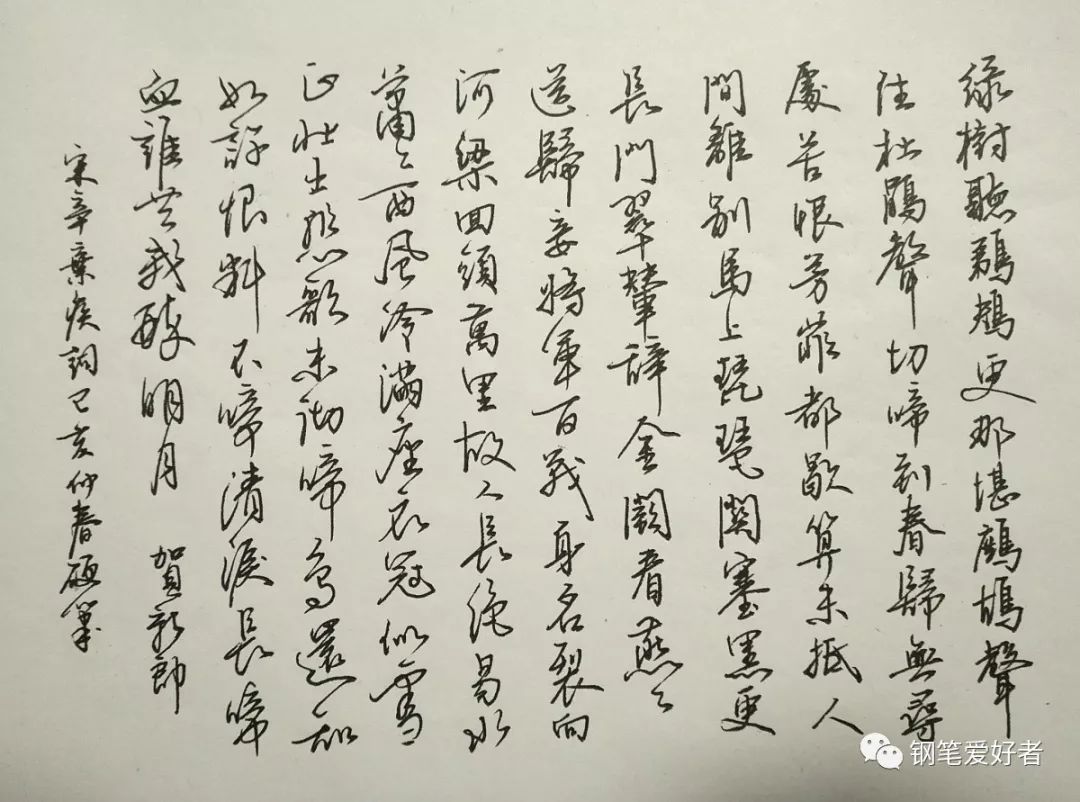 綠樹聽鵜鴂更那堪鷓鴣聲
住杜鵑聲切啼到春歸無尋
處苦恨芳菲都歇算未抵人
間離別馬上琵琶關塞黑更
長門翠輦辭金闕看燕〻
送歸妾將軍百戰身名裂向
河梁回頭萬里故人長絕易水
蕭〻西風冷滿座衣冠似雪
正壯士悲歌未徹啼鳥還知
如許恨料不啼清淚長啼
血誰共我醉明月 賀新郎
宋辛棄疾詞己亥仲春硬筆
钢笔爱好者